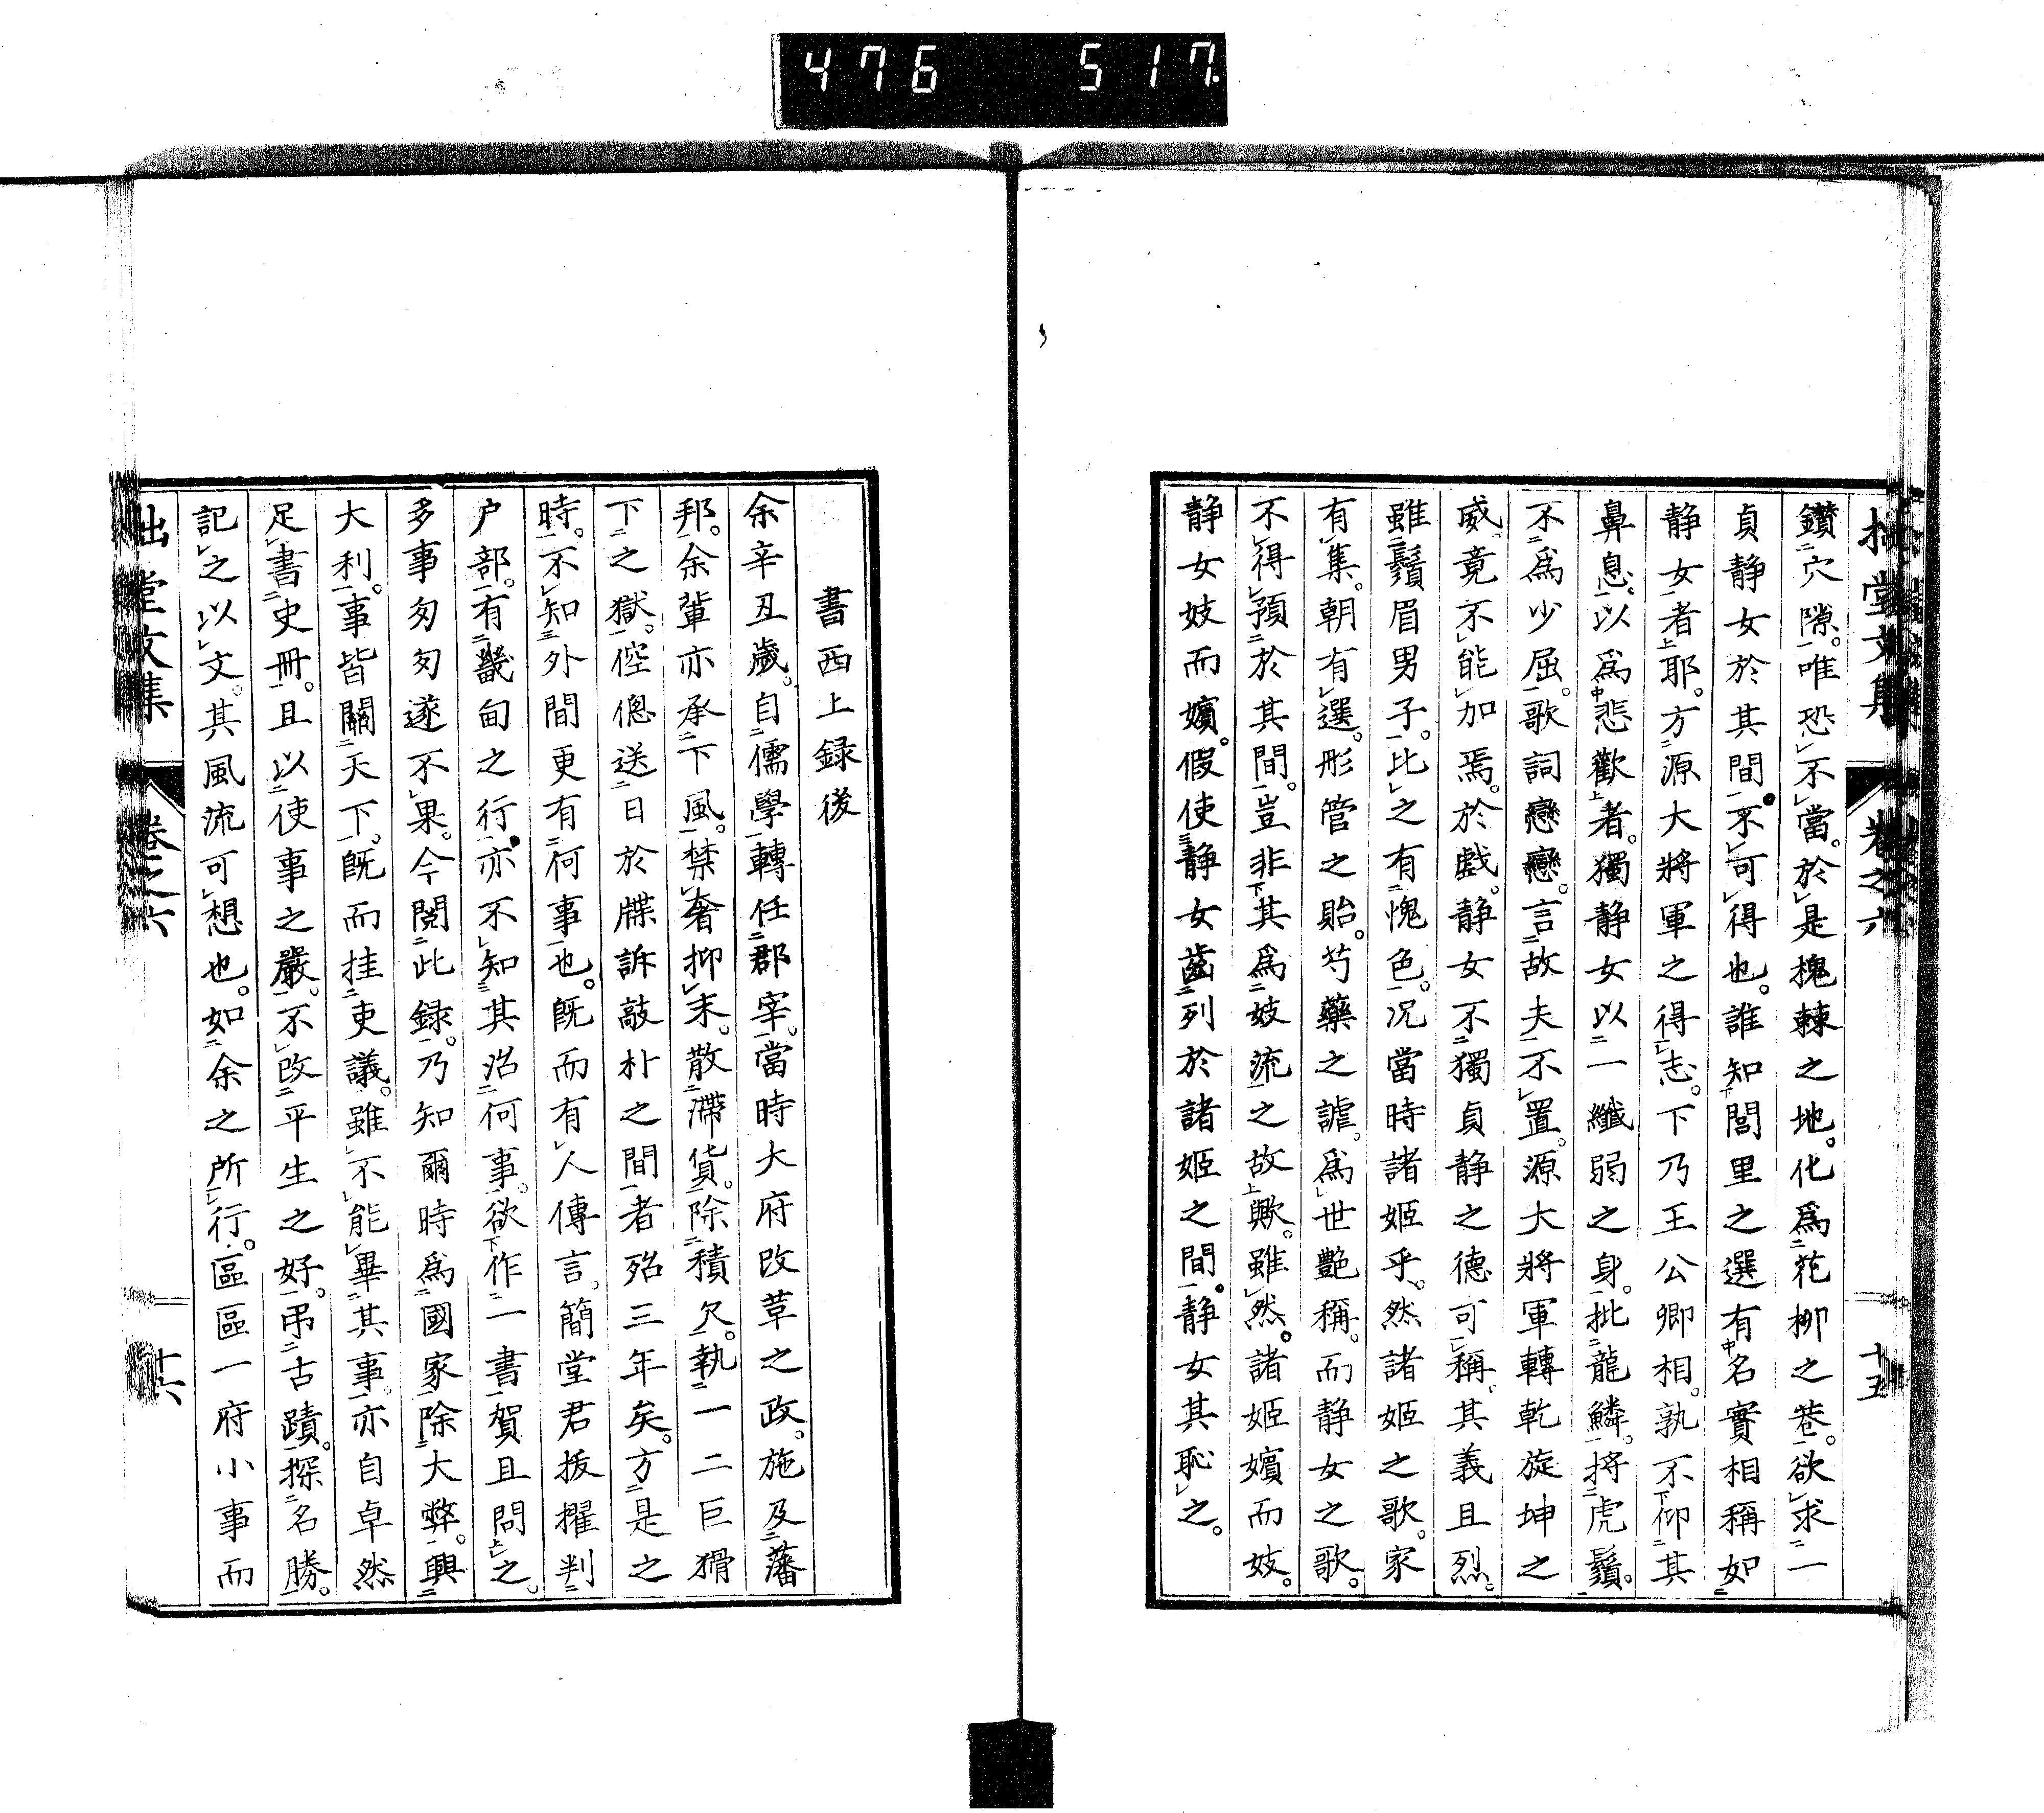 476 517
拙堂文集 卷之六 十五
鑚穴隙。唯恐不當。於是槐棘之地。化爲花柳之巷。欲求一
貞静女於其間。不可得也。誰知閭里之選有名實相稱如
静女者耶。方源大將軍之得志。下乃王公卿相。孰不仰其
鼻息。以爲悲歡者。獨静女以一纖弱之身。批龍鱗。捋虎鬚。
不爲少屈。歌詞戀戀。言故夫不置。源大將軍轉乾旋坤之
威。竟不能加焉。於戯。静女不獨貞静之德可稱。其義且烈。
雖鬚眉男子。比之有愧色。况當時諸姬乎。然諸姬之歌。家
有集。朝有選。彤管之貽。芍藥之謔。爲世艶稱。而静女之歌。
不得預於其間。豈非其爲妓流之故歟。雖然。諸姬嬪而妓。
静女妓而嬪。假使静女齒列於諸姬之間。静女其恥之。
書西上録後
余辛丑歲。自儒學轉任郡宰。當時大府改革之政。施及藩
邦。余輩亦承下風。禁奢抑末。散滯貨。除積欠。執一二巨猾
下之獄。倥傯送日於牒訴敲朴之間者殆三年矣。方是之
時。不知外間更有何事也。既而有人傳言。簡堂君拔擢判
户部。有畿甸之行。亦不知其治何事。欲作一書賀且問之。
多事匆匆遂不果。今閲此録。乃知爾時爲國家除大弊。興
大利。事皆關天下。既而挂吏議。雖不能畢其事。亦自卓然
足書史冊。且以使事之嚴。不改平生之好。弔古蹟。探名勝。
記之以文。其風流可想也。如余之所行。區區一府小事而
拙堂文集 卷之六 十六